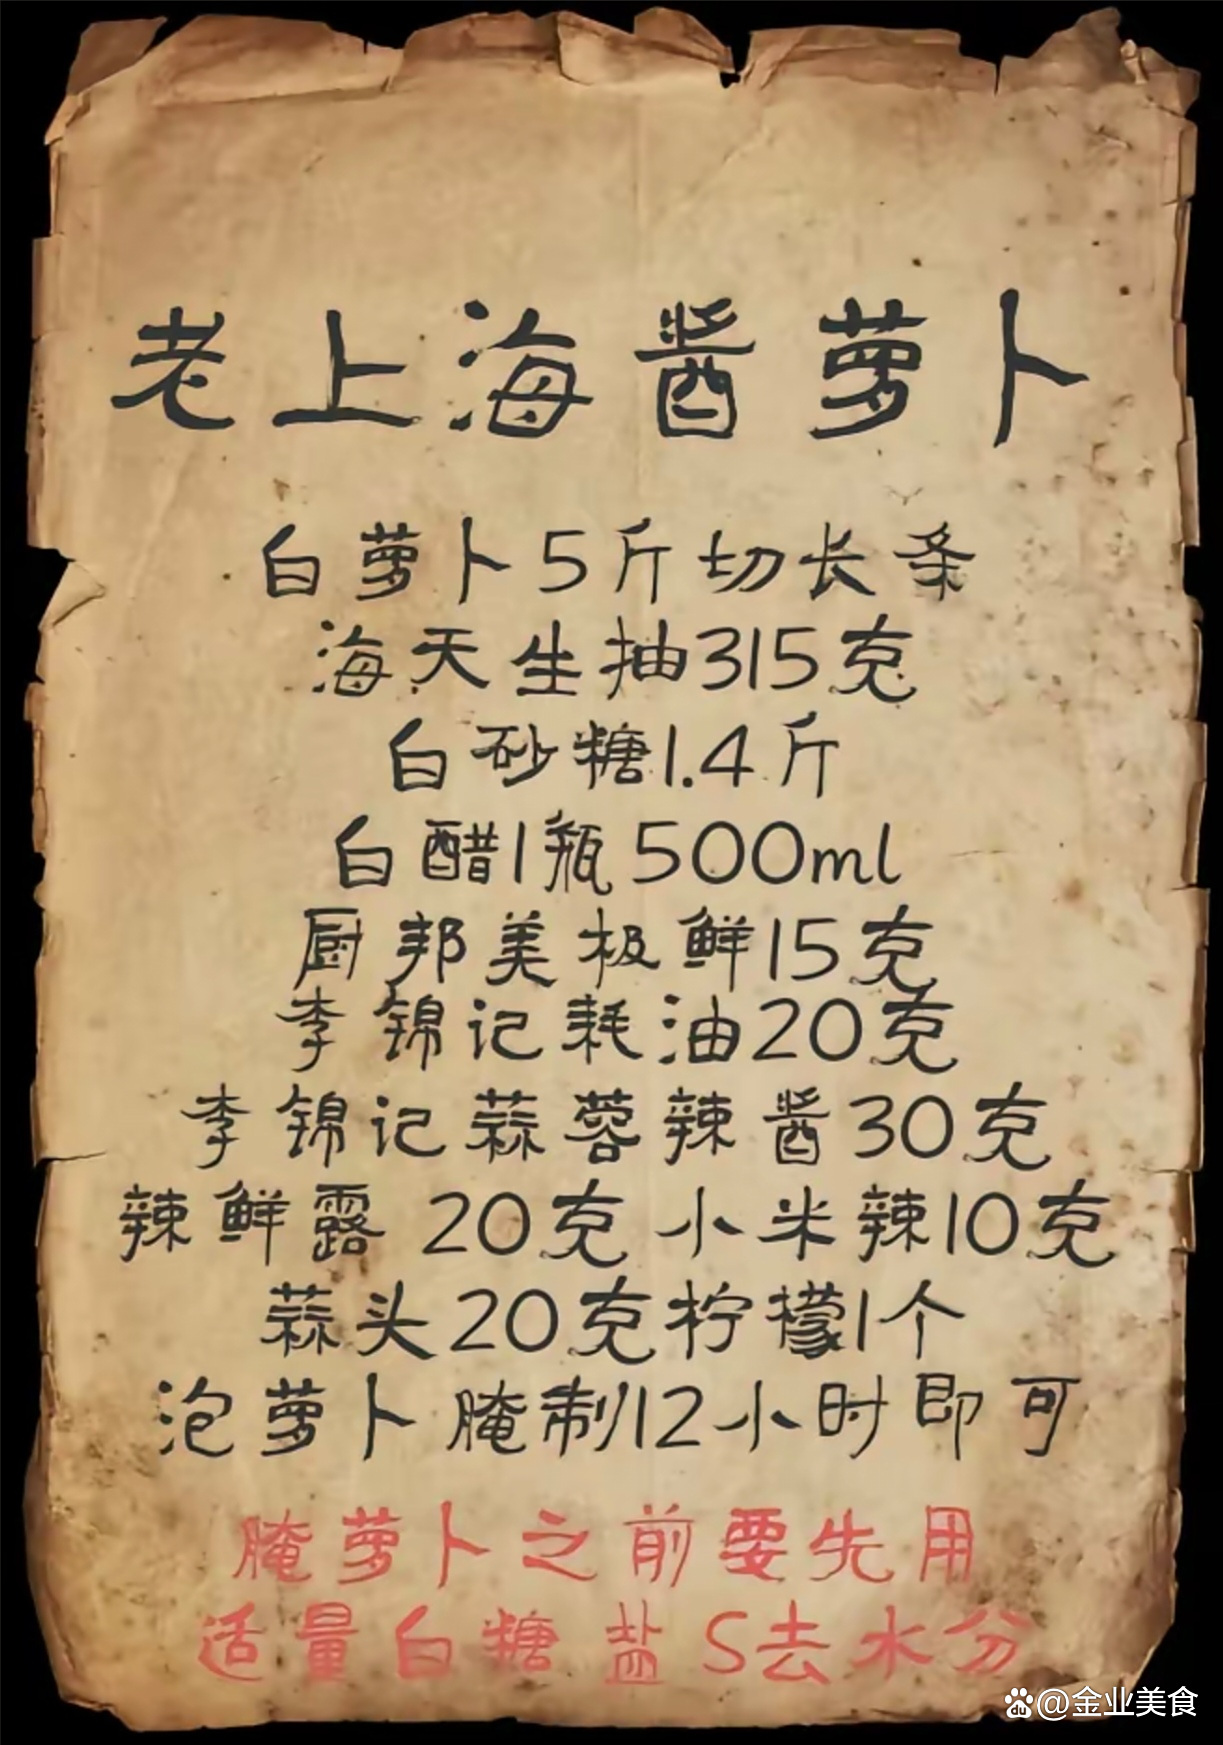 老上海酱萝卜
白萝卜5斤切长条
海天生抽315克
白砂糖1.4斤
白醋1瓶500ml
厨邦美极鲜15克
李锦记耗油20克
李锦记蒜蓉辣酱30克
辣鲜露 20克 小米辣10克
蒜头20克柠檬1个
泡萝卜腌制12小时即可
腌萝卜之前要先用
适量白糖盐S去水分
@金业美食